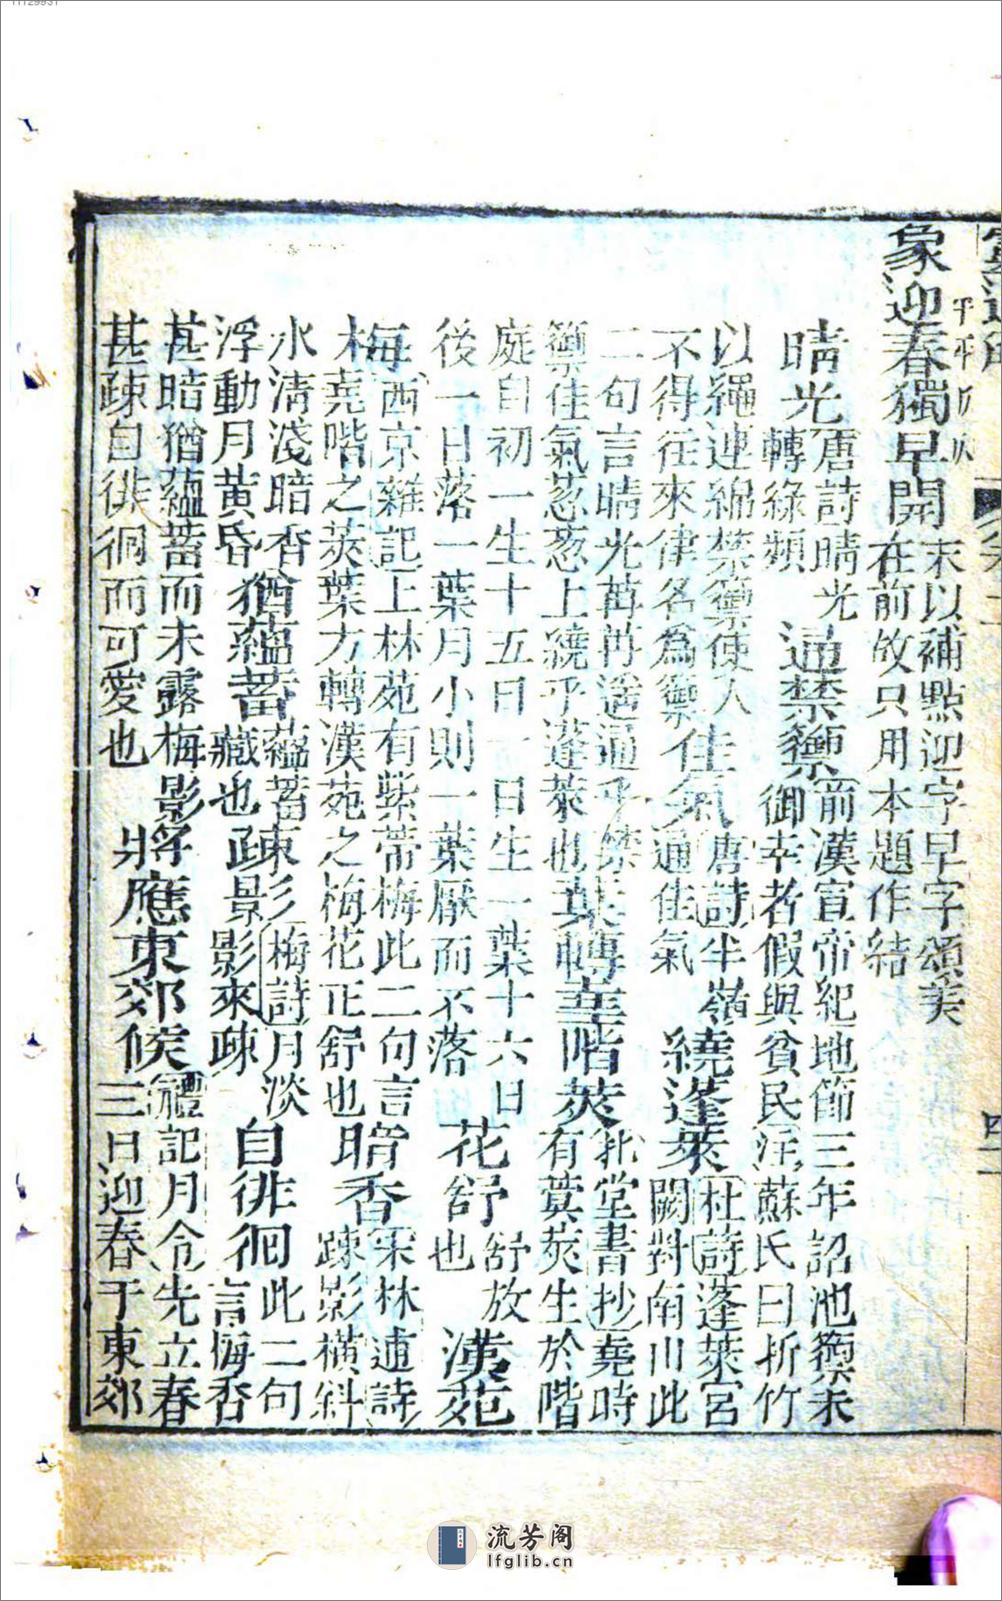 象迎春獨早開末以補點迎字早字頌美
在前故只用本題作結
晴光唐詩晴光
轉綠頻
通禁籞前漢宣帝紀地節三年詔池籞未
御幸者假與貧民注蘇氏曰折竹
以繩連綿禁籞使人
不得往來律名為籞
佳氣唐詩半嶺
通佳氣
繞蓬萊杜詩蓬萊宮
闕對南山此
二句言晴光苒苒遙通乎禁
籞佳氣葱葱上繞乎蓬萊也
葉轉堯階蓂北堂書抄堯時
有蓂莢生於階
庭自初一生十五日一日生一葉十六日
後一日落一葉月小則一葉厭而不落
花舒舒放
也
漢苑
梅西京雜記上林苑有紫蒂梅此二句言
堯階之莢葉方轉漢苑之梅花正舒也
暗香宋林逋詩
疎影橫斜
水清淺暗香
浮動月黃昏
猶蘊蓄蘊蓄
藏也
疎影梅詩月淡
影來疎
自徘徊此二句
言梅香
甚暗猶蘊蓄而未露梅影
甚疎自徘徊而可愛也
將應東郊候禮記月令先立春
三日迎春于東郊
四十
流芳阁
lfglib.cn
11129931